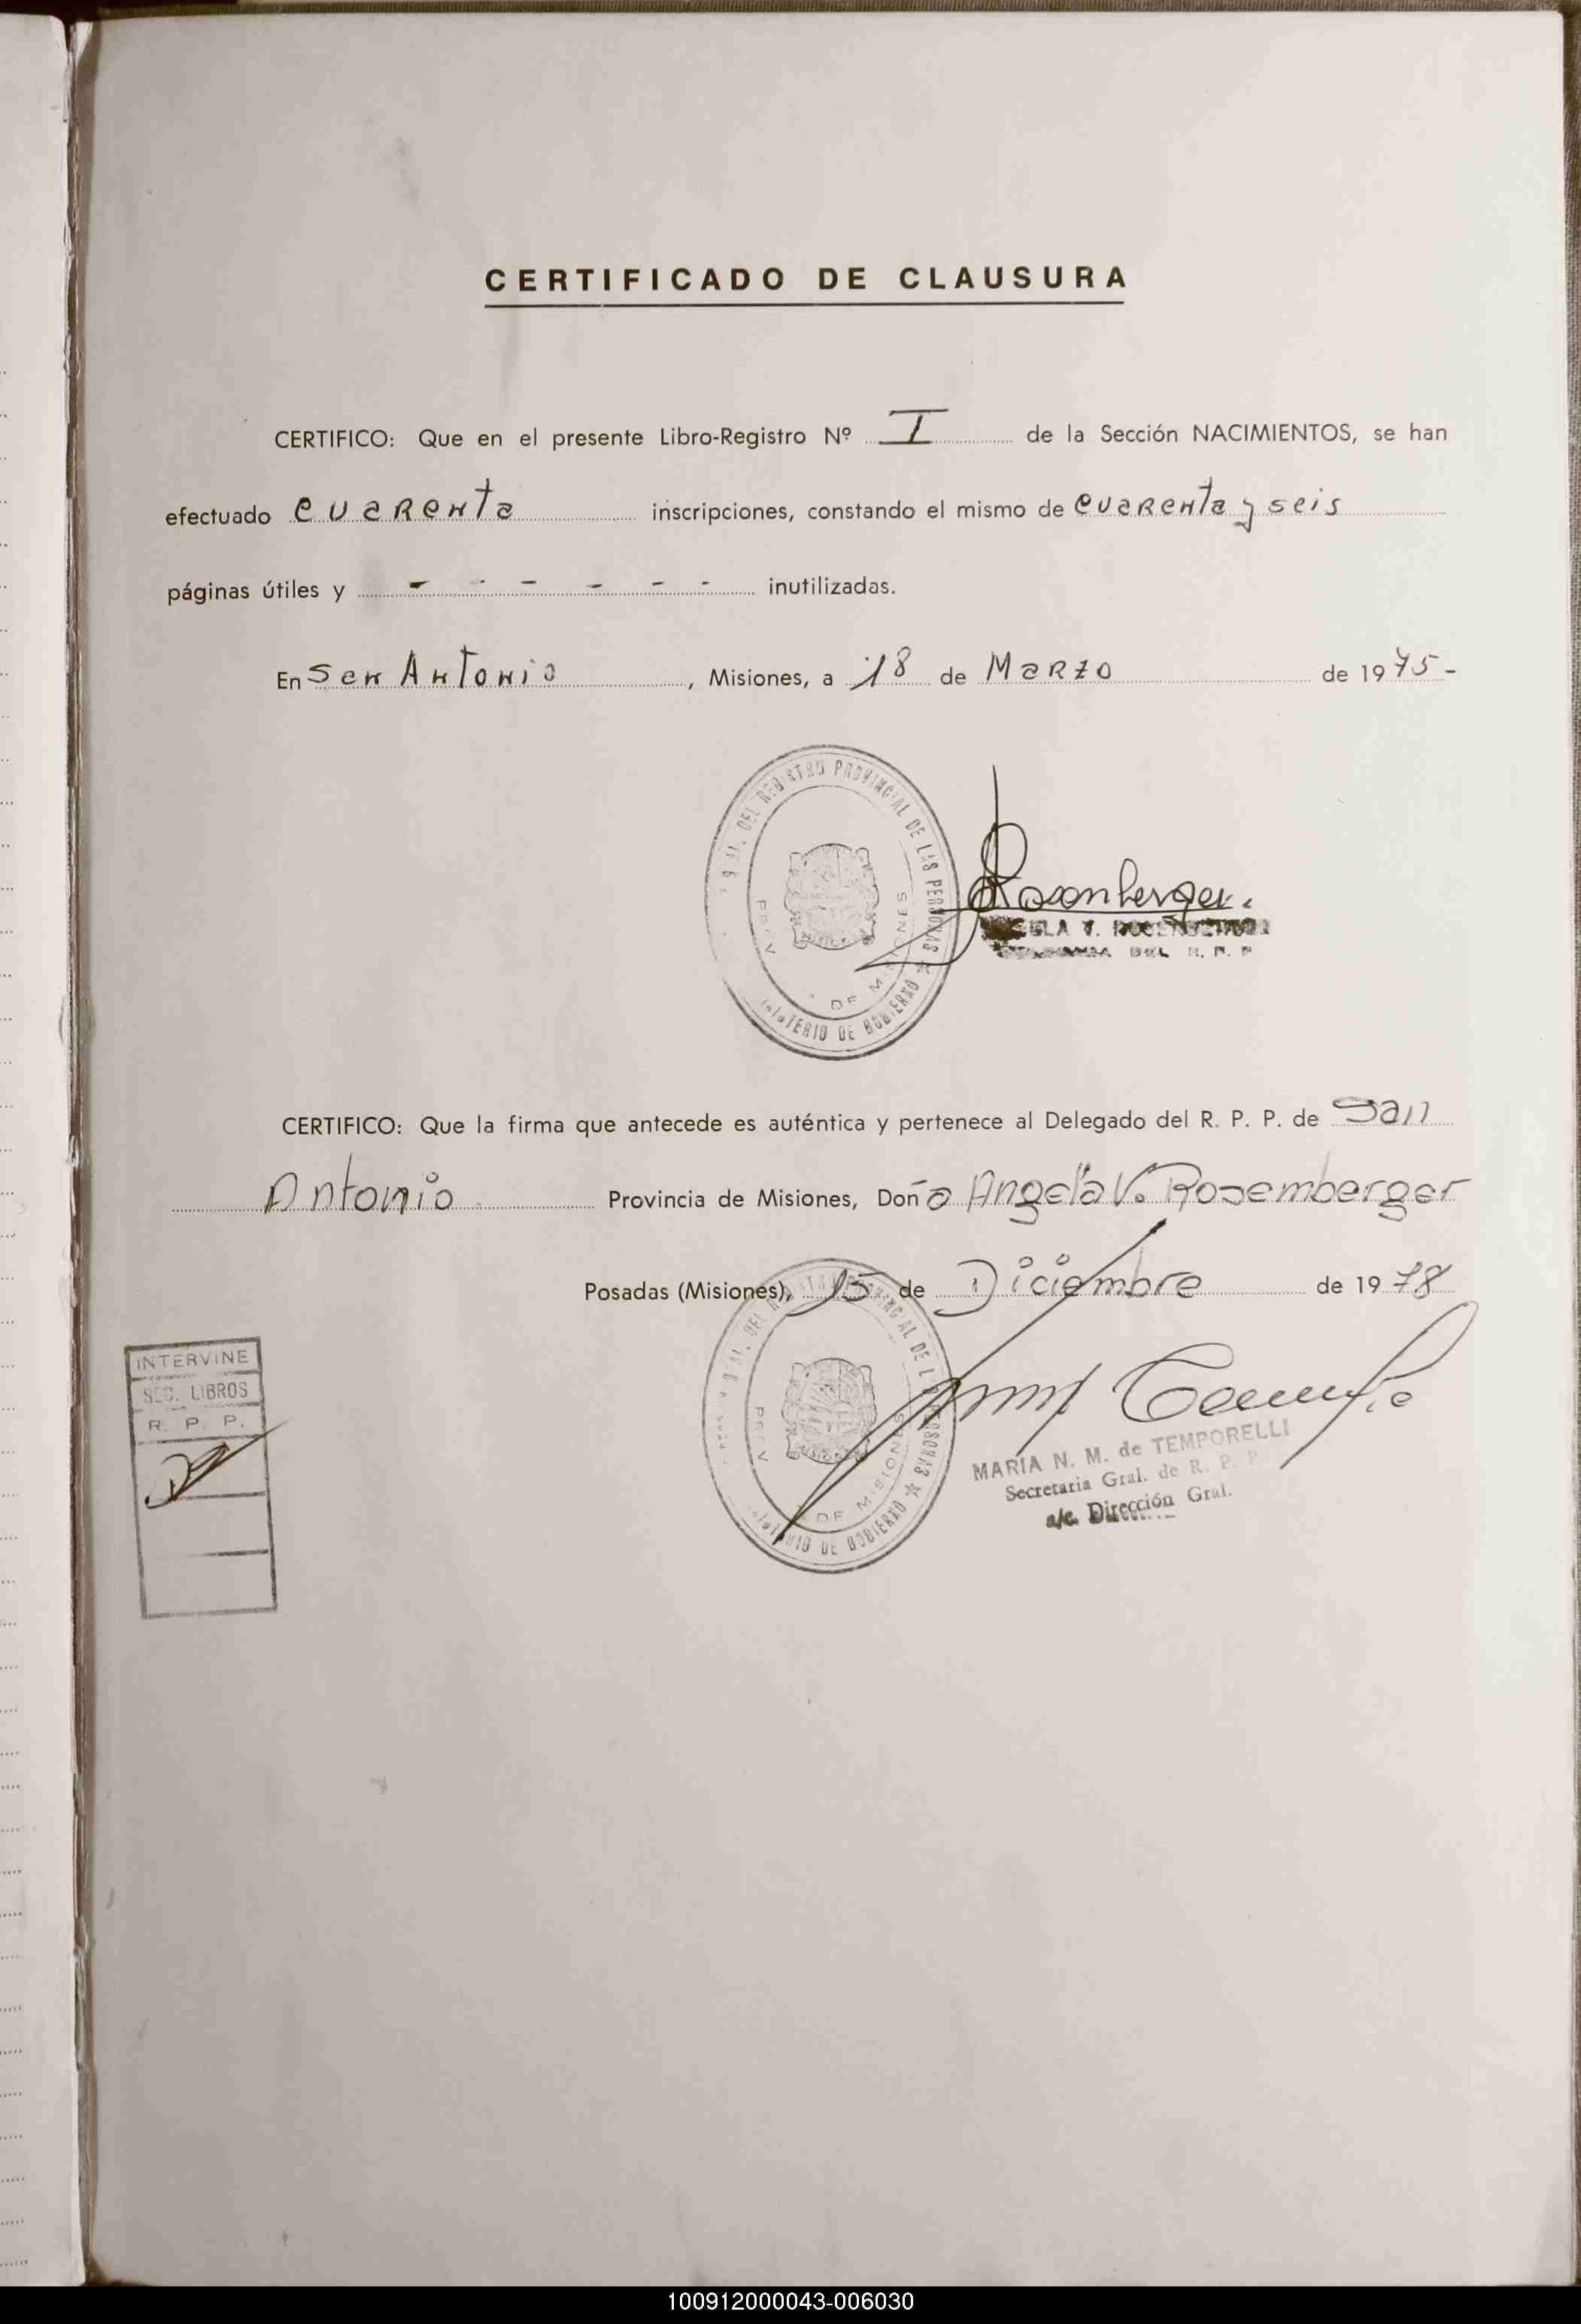 CERTIFICADO DE CLAUSURA
CERTIFICO: Que en el presente Libro-Registro Nº I de la Sección NACIMIENTOS, se han
efectuado cuarenta inscripciones, constando el mismo de cuarenta y seis
páginas útiles y - - - - - - inutilizadas.
En San Antonio, Misiones, a 18 de Marzo de 1975-
GRAL. DEL REGISTRO PROVINCIAL DE LAS PERSONAS
PROV DE MISIONES
MINISTERIO DE GOBIERNO
Rosenberger.
V. ROSENBERGER
DEL R. P. P
CERTIFICO: Que la firma que antecede es auténtica y pertenece al Delegado del R. P. P. de San
Antonio Provincia de Misiones, Doña Angela V. Rosemberger
Posadas (Misiones), 15 de Diciembre de 1978
GRAL. DEL REGISTRO PROVINCIAL DE LAS PERSONAS
PROV DE MISIONES
MINISTERIO DE GOBIERNO
INTERVINE
SEC. LIBROS
R. P. P.
MARÍA N. M. de TEMPORELLI
Secretaria Gral. de R. P. P.
a/c. Dirección Gral.
100912000043-006030